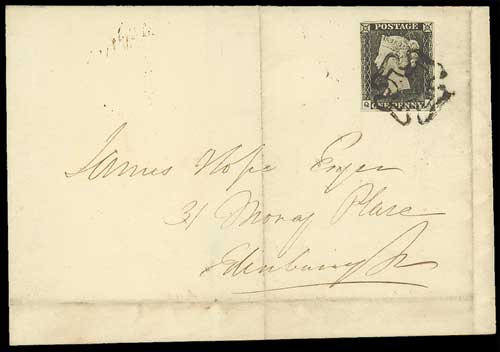 POSTAGE
Q ONE PENNY
James Hope Esqre
31 Moray Place
Edinburgh